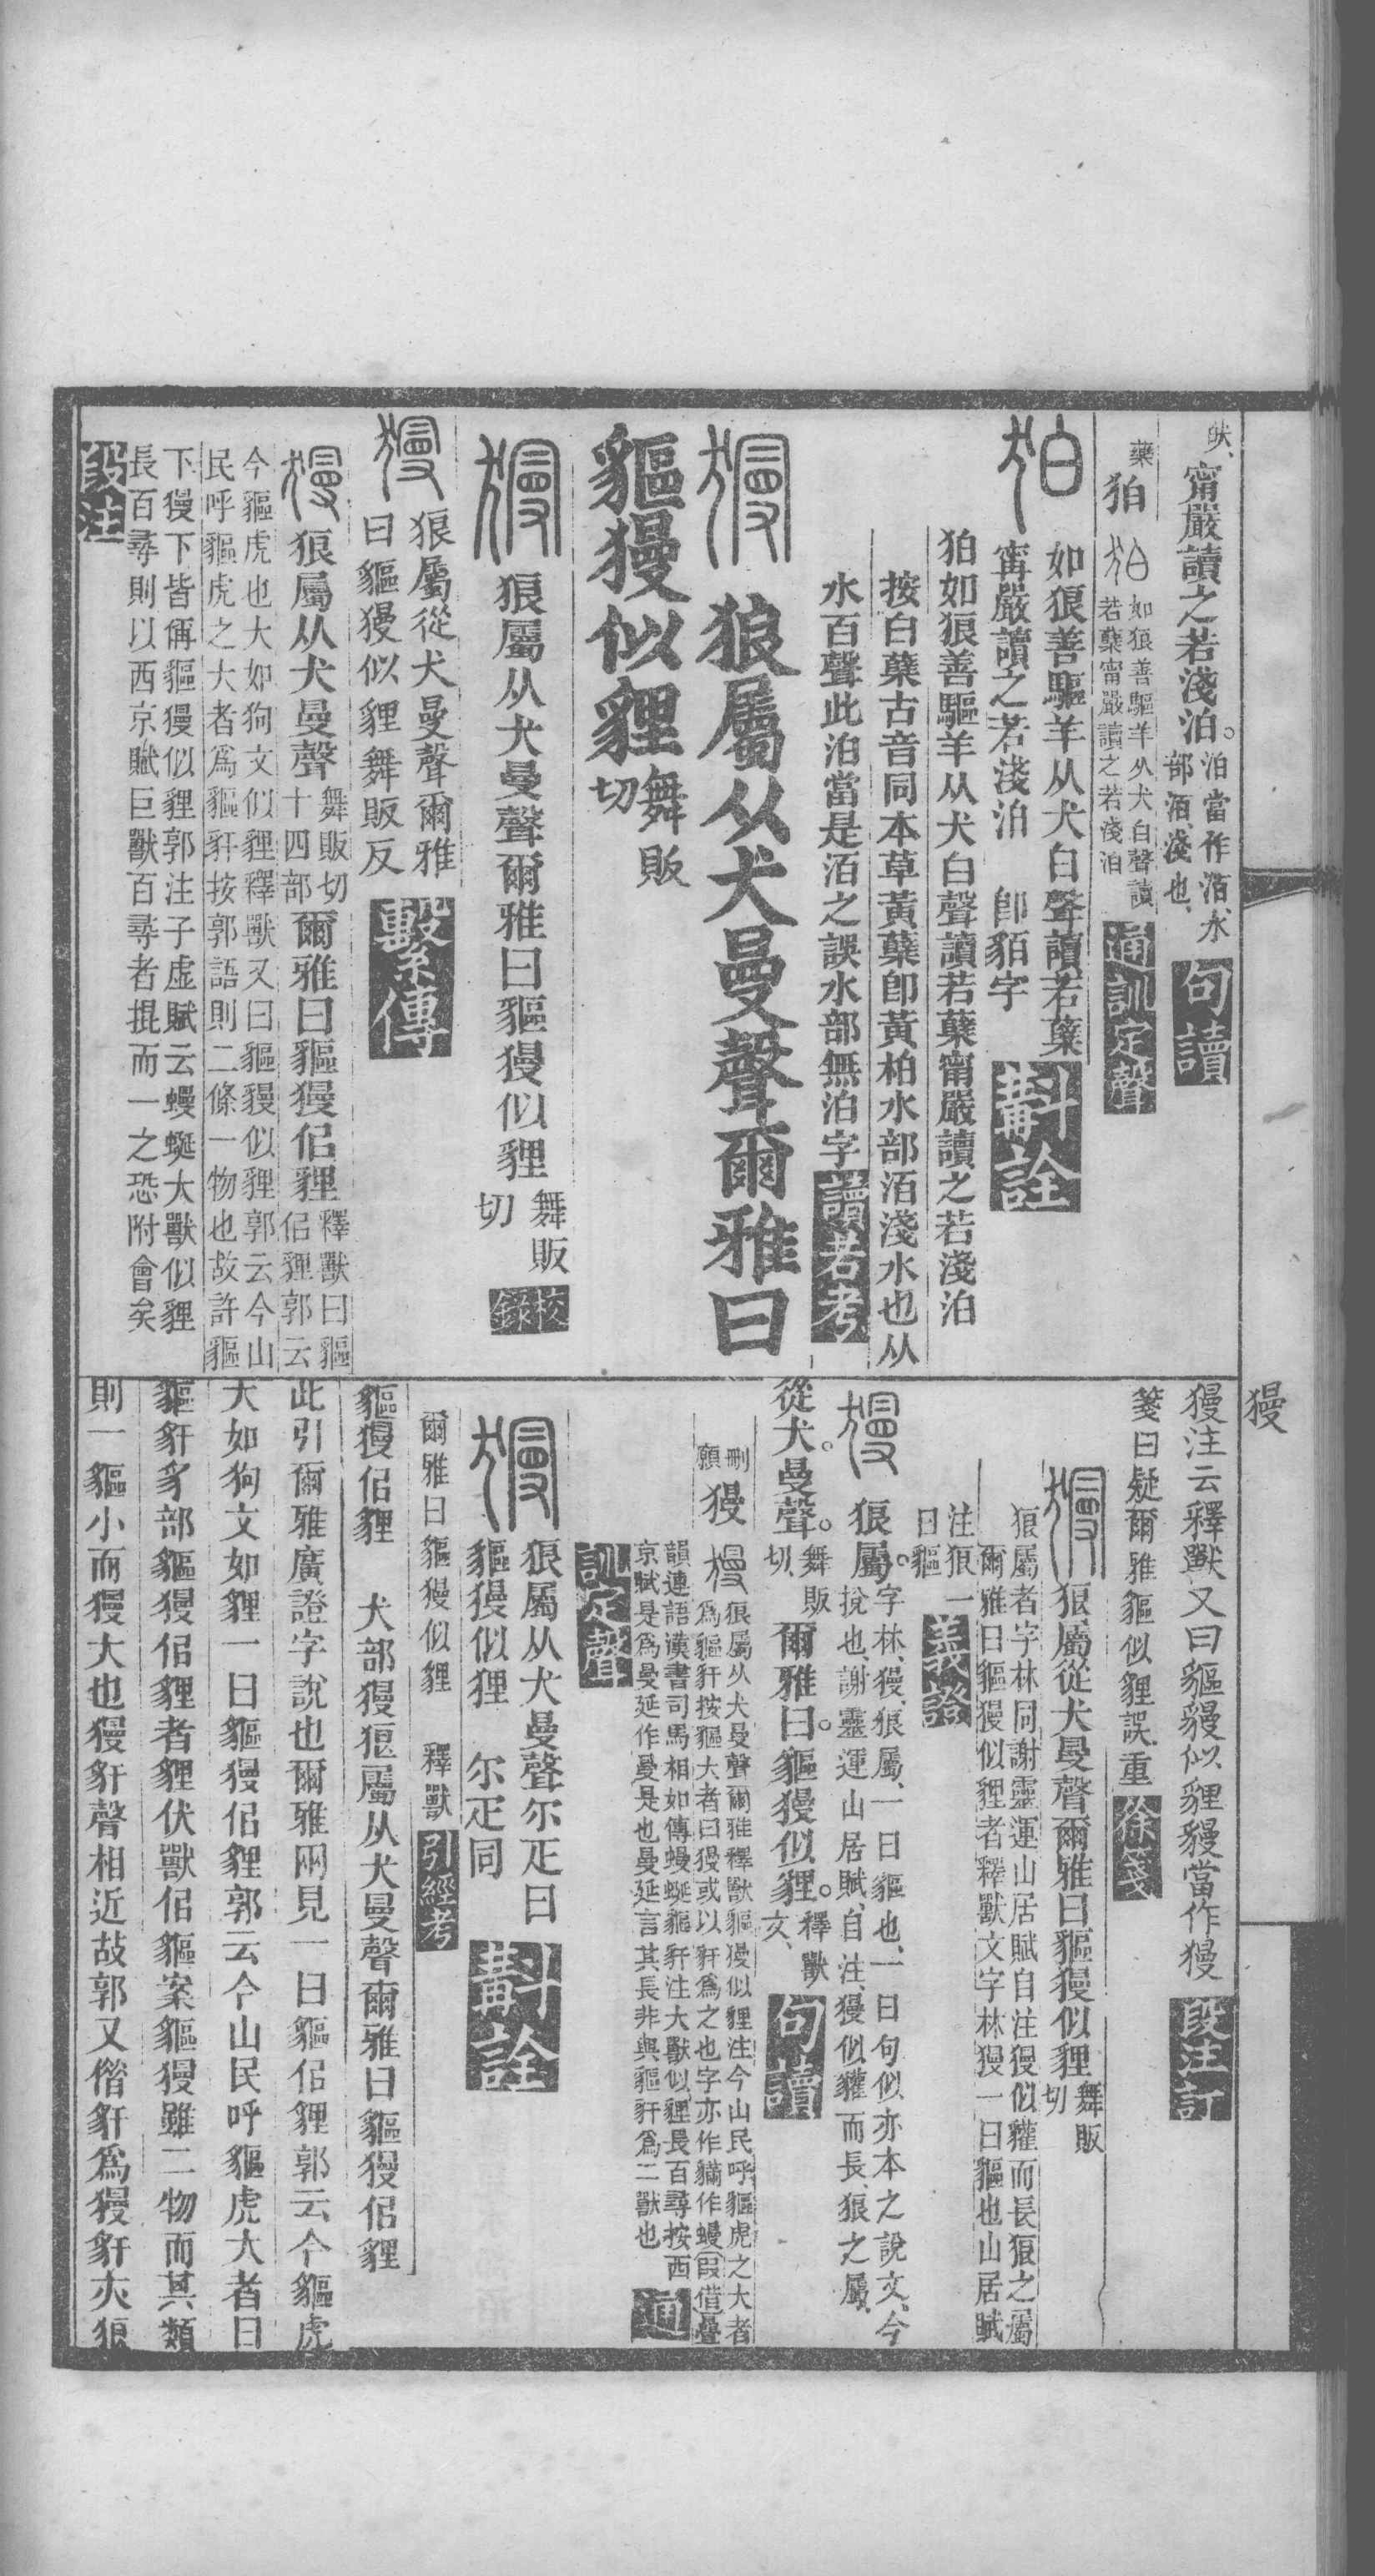 甯嚴讀之若淺泊。泊當作洦、水
部洦、淺也、
句讀
狛
如狼善驅羊从犬白聲讀
若蘗甯嚴讀之若淺泊
通訓定聲
如狼善驅羊从犬白聲讀若蘗
甯嚴讀之若淺泊 卽貊字
斠詮
狛如狼善驅羊从犬白聲讀若蘗甯嚴讀之若淺泊
按白蘗古音同本草黃蘗卽黃柏水部洦淺水也从
水百聲此泊當是洦之誤水部無泊字讀若考
狼屬从犬曼聲爾雅曰
貙獌似貍舞販
切
狼屬从犬曼聲爾雅曰貙獌似貍舞販
切
校
錄
狼屬從犬曼聲爾雅
曰貙獌似貍舞販反
繫傳
狼屬从犬曼聲舞販切
十四部
爾雅曰貙獌侣貍釋獸曰貙
侣貍郭云
今貙虎也大如狗文似貍釋獸又曰貙獌似貍郭云今山
民呼貙虎之大者爲貙豻按郭語則二條一物也故許貙
下獌下皆偁貙獌似貍郭注子虛賦云蟃蜒大獸似貍
長百尋則以西京賦巨獸百尋者掍而一之恐附會矣
段注
獌
獌注云釋獸又曰貙獌似貍獌當作獌
段注訂
箋曰疑爾雅貙似貍誤重
徐箋
狼屬從犬曼聲爾雅曰貙獌似貍舞販
切
狼屬者字林同謝靈運山居賦自注獌似貛而長狼之屬
爾雅曰貙獌似貍者釋獸文字林獌一曰貙也山居賦
注狼一
曰貙
義證
狼屬。字林、獌、狼屬、一曰貙也、一曰句似亦本之說文、今
挩也、謝靈運山居賦、自注、獌似貛而長、狼之屬、
從犬。曼聲。舞販
切、
爾雅曰。貙獌似貍。釋獸
文、
句讀
刪
願
獌
狼屬从犬曼聲爾雅釋獸貙獌似貍注今山民呼貙虎之大者
爲貙豻按貙大者曰獌或以豻爲之也字亦作䝢作蟃叚借疊
韻連語漢書司馬相如傳蟃蜒貙豻注大獸似貍長百尋按西
京賦是爲曼延作曼是也曼延言其長非與貙豻爲二獸也
通
訓定聲
狼屬从犬曼聲尔疋曰
貙獌似狸 尔疋同
斠詮
爾雅曰貙獌似貍 釋獸引經考
貙獌侣貍 犬部獌狼屬从犬曼聲爾雅曰貙獌侣貍
此引爾雅廣證字說也爾雅兩見一曰貙侣貍郭云今貙虎
大如狗文如貍一曰貙獌侣貍郭云今山民呼貙虎大者曰
貙豻豸部貙獌侣貍者貍伏獸侣貙案貙獌雖二物而其類
則一貙小而獌大也獌豻聲相近故郭又偕豻爲獌豻亦狼